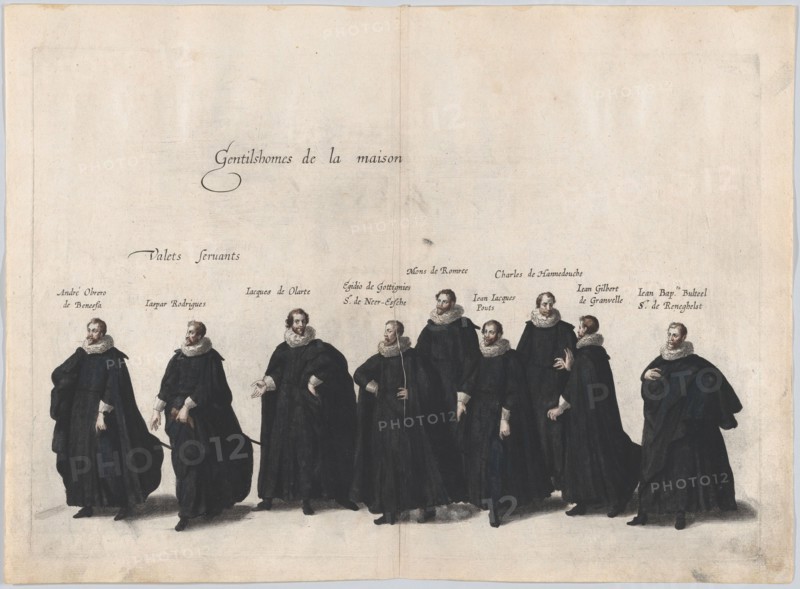 Gentilshomes de la maison
Valets servants
André Obrero
de Beneesa
Iaspar Rodrigues
Iacques de Olarte
Egidio de Gottignies
Sr. de Neer-Eyssche
Mons de Romree
Ian Iacques
Pouts
Charles de Hannedouche
Iean Gilbert
de Granvelle
Iean Bap.ta Bulteel
Sr. de Reneghelst
PHOTO12
PHOTO12
PHOTO12
PHOTO12